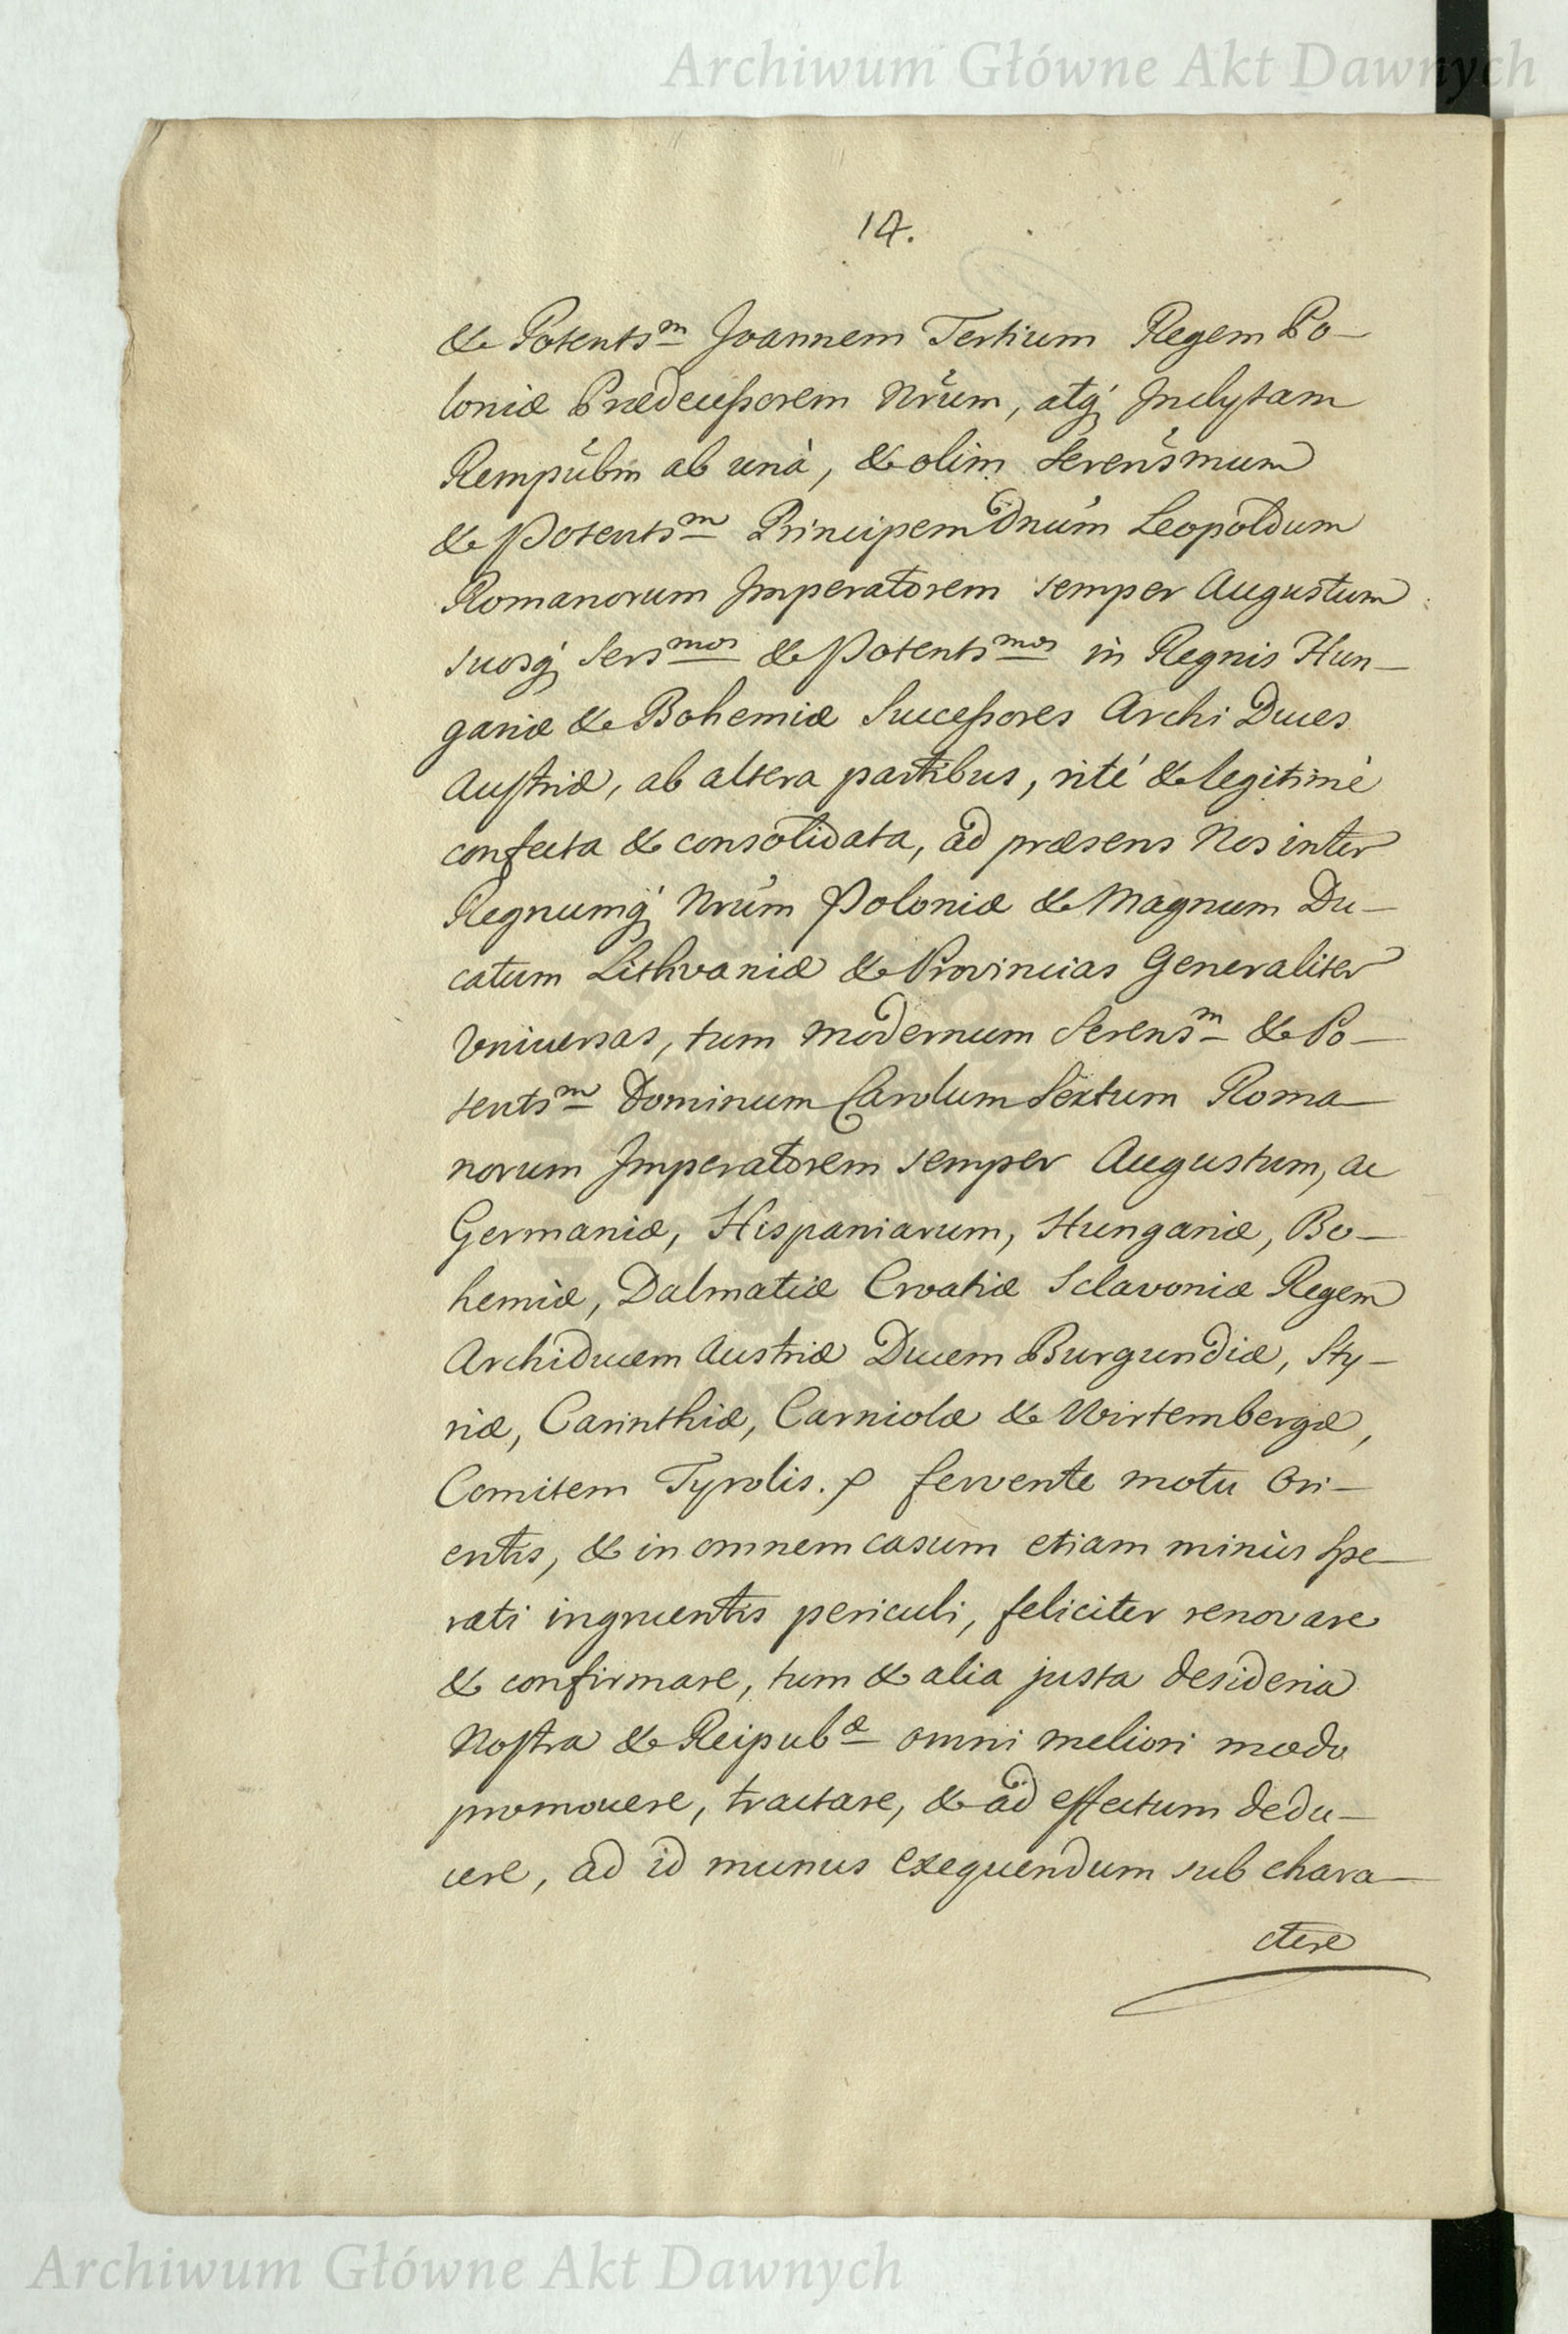 Archiwum Główne Akt Dawnych
14.
& Potentsm Joannem Tertium Regem Po-
loniæ Prædecessorem Nrum, atq; Inclytam
Rempubm ab unà, & olim Serensmum
& Potentsm Principem Dnum Leopoldum
Romanorum Imperatorem semper Augustum
suosq; Sersmos & Potentsmos in Regnis Hun-
gariæ & Bohemiæ Successores Archi Duces
Austriæ, ab altera partibus, rité & legitimè
confecta & consolidata, ad præsens Nos inter
Regnumq; Nrum Poloniæ & Magnum Du-
catum Lithvaniæ & Provincias Generaliter
Universas, tum modernum Serensm & Po-
tentsm Dominum Carolum Sextum Roma-
norum Imperatorem semper Augustum, ac
Germaniæ, Hispaniarum, Hungariæ, Bo-
hemiæ, Dalmatiæ Croatiæ Sclavoniæ Regem
Archiducem Austriæ Ducem Burgundiæ, Sty-
riæ, Carinthiæ, Carniolæ & Wirtembergæ,
Comitem Tyrolis. fervente motu Ori-
entis, & in omnem casum etiam minùs spe-
rati ingruentis periculi, feliciter renovare
& confirmare, tum & alia justa desideria
Nostra & Reipubæ omni meliori modo
promovere, tractare, & ad effectum dedu-
cere, ad id munus exequendum sub chara-
ctere
Archiwum Główne Akt Dawnych